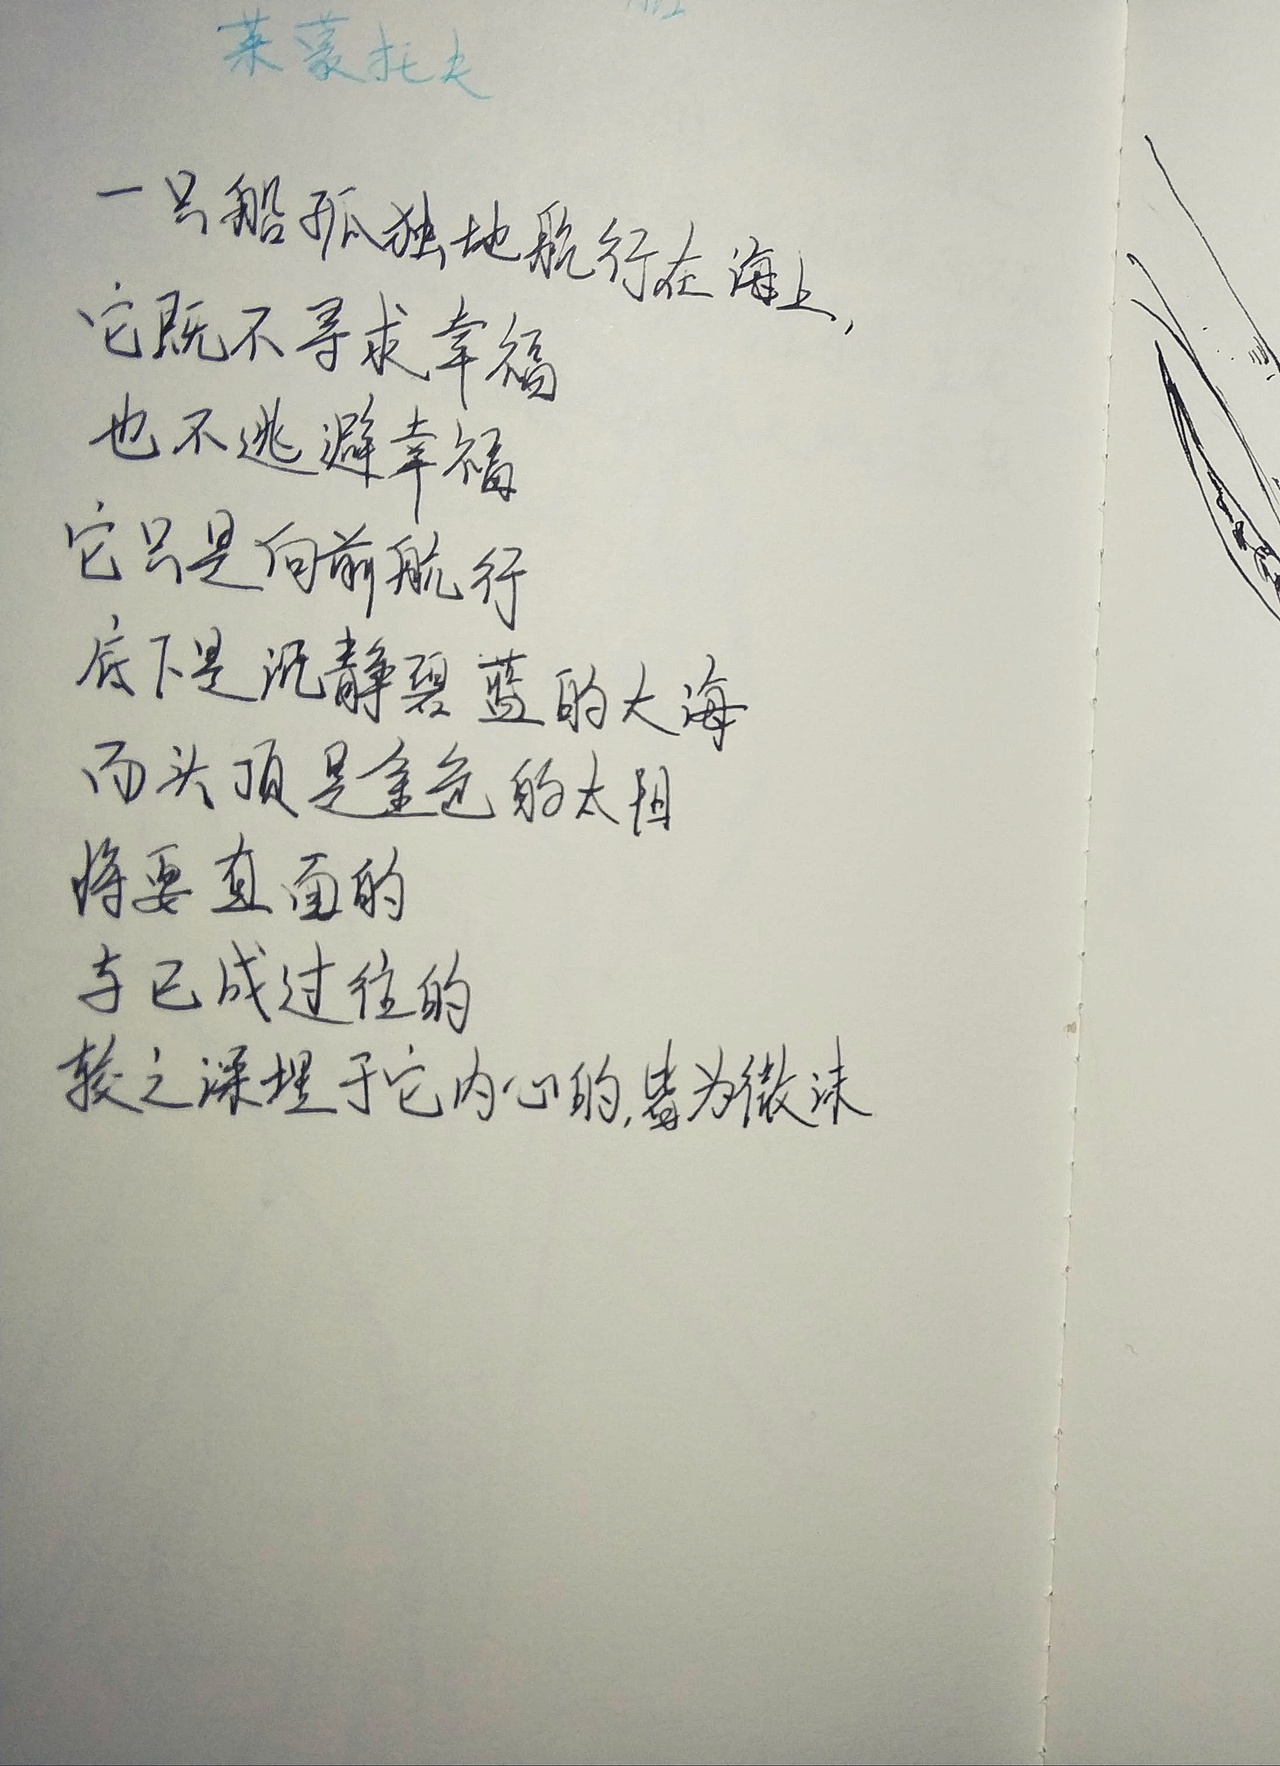 莱蒙托夫
一只船孤独地航行在海上,
它既不寻求幸福
也不逃避幸福
它只是向前航行
底下是沉静碧蓝的大海
而头顶是金色的太阳
将要直面的
与已成过往的
较之深埋于它内心的,皆为微沫